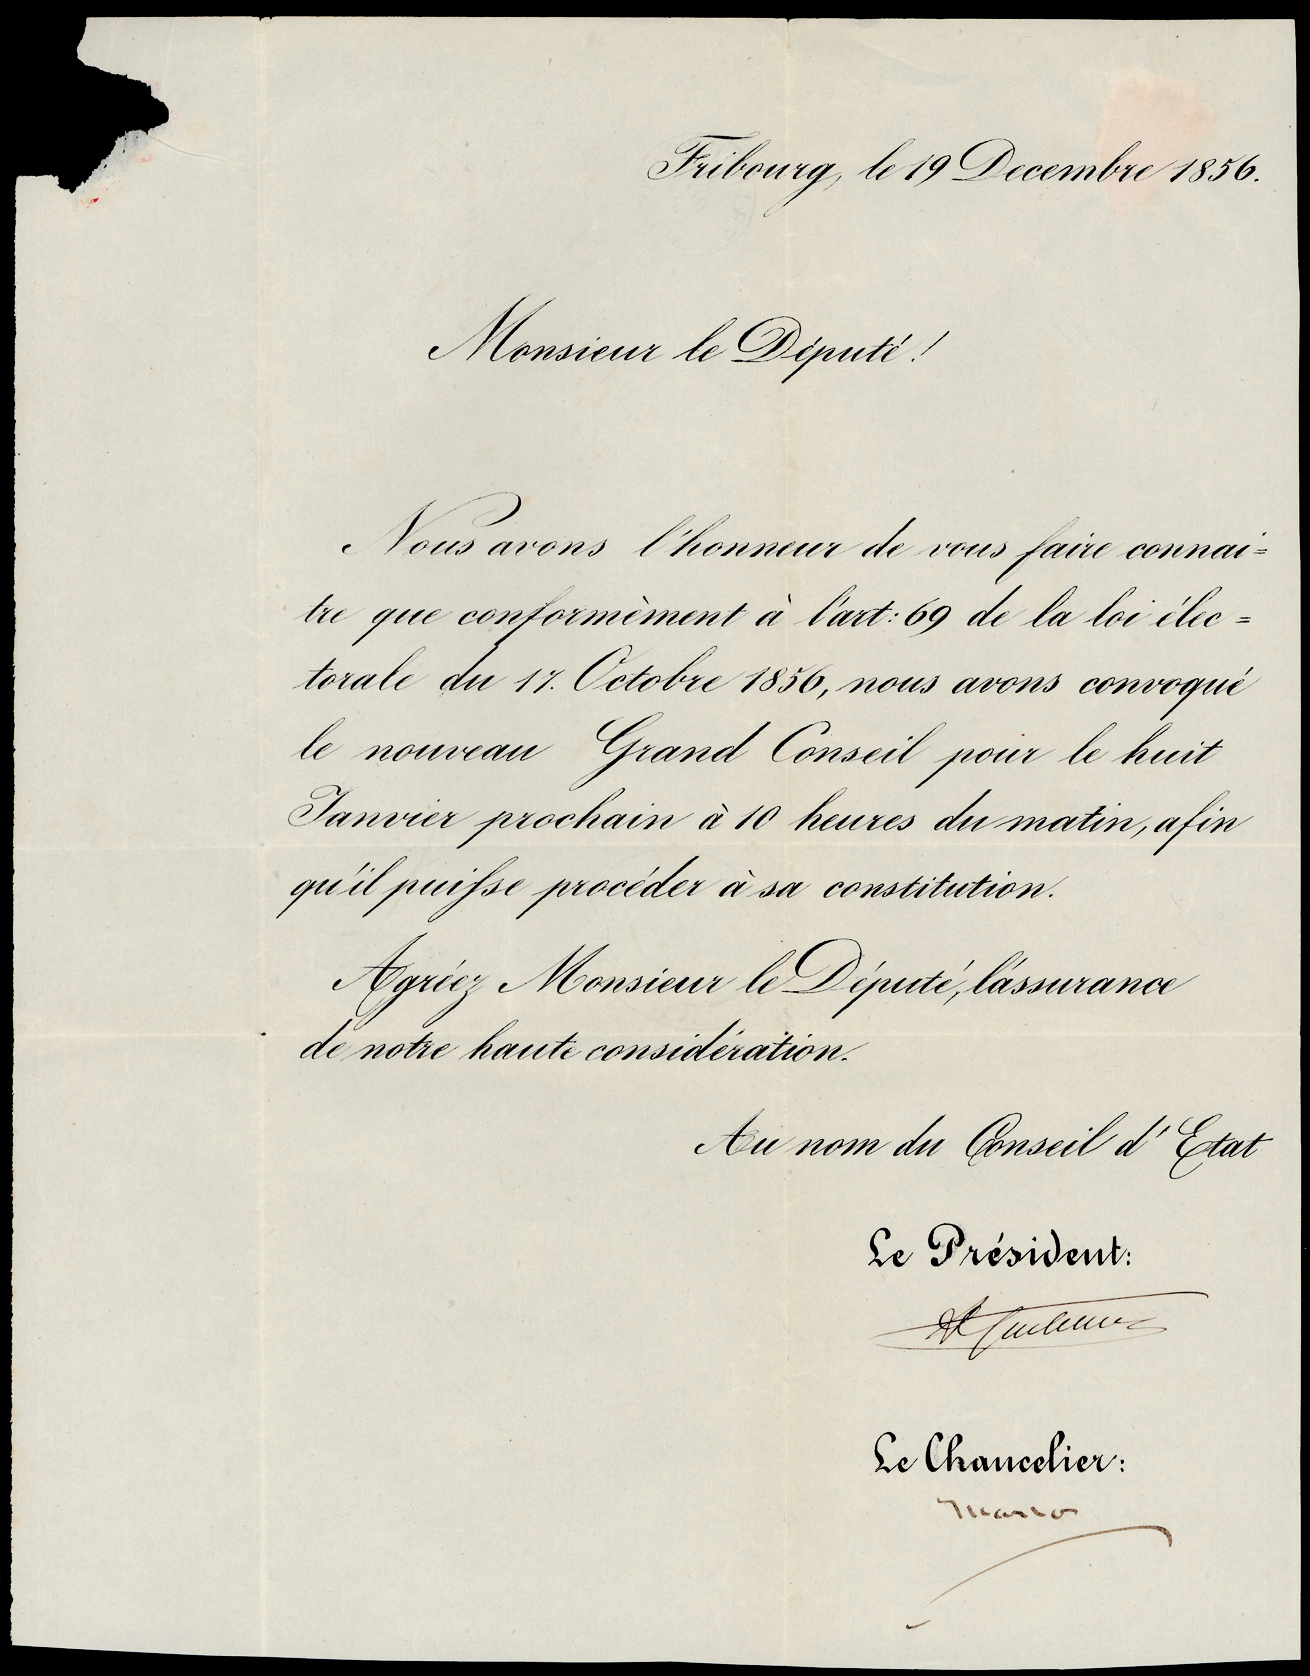 Fribourg, le 19 Decembre 1856.
Monsieur le Député !
Nous avons l'honneur de vous faire connai=
tre que conformèment à l'art: 69 de la loi élec=
torale du 17. Octobre 1856, nous avons convoqué
le nouveau Grand Conseil pour le huit
Janvier prochain à 10 heures du matin, afin
qu'il puisse procéder à sa constitution.
Agréez Monsieur le Député, l'assurance
de notre haute considération.
Au nom du Conseil d'Etat
Le Président:
Le Chancelier: